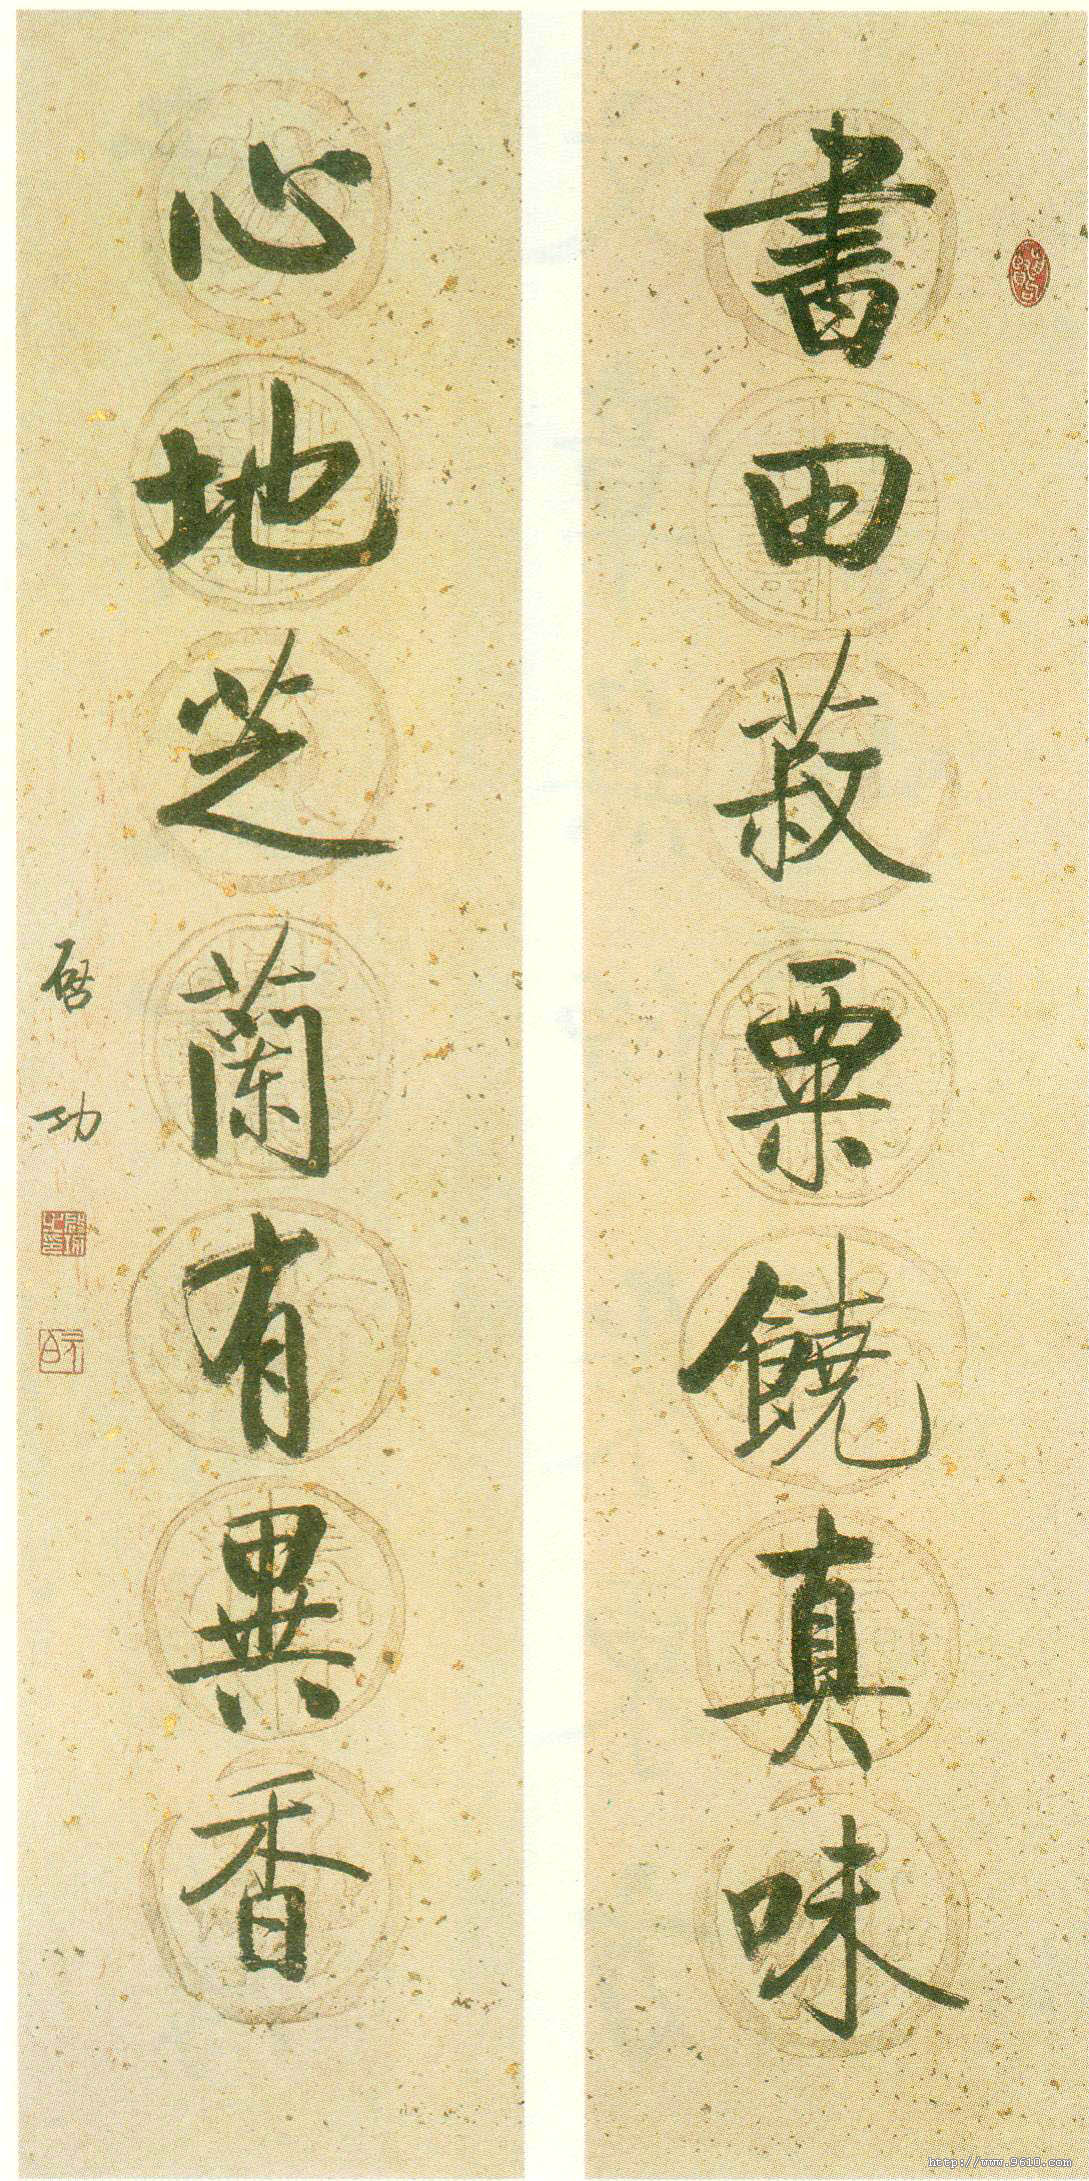 書田菽粟饒真味
心地芝蘭有異香
启功
http://www.9610.com